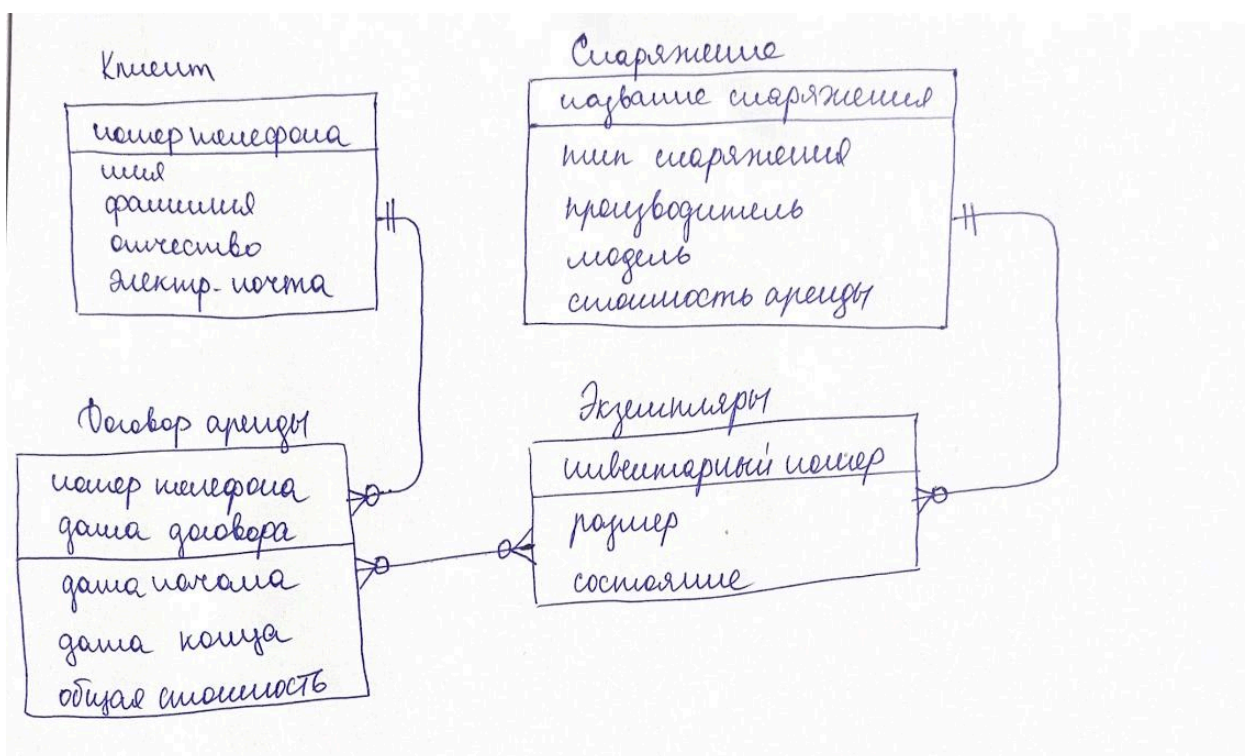 Клиент
номер телефона
имя
фамилия
отчество
электр. почта
Снаряжение
название снаряжения
тип снаряжения
производитель
модель
стоимость аренды
Договор аренды
номер телефона
дата договора
дата начала
дата конца
общая стоимость
Экземпляры
инвентарный номер
размер
состояние